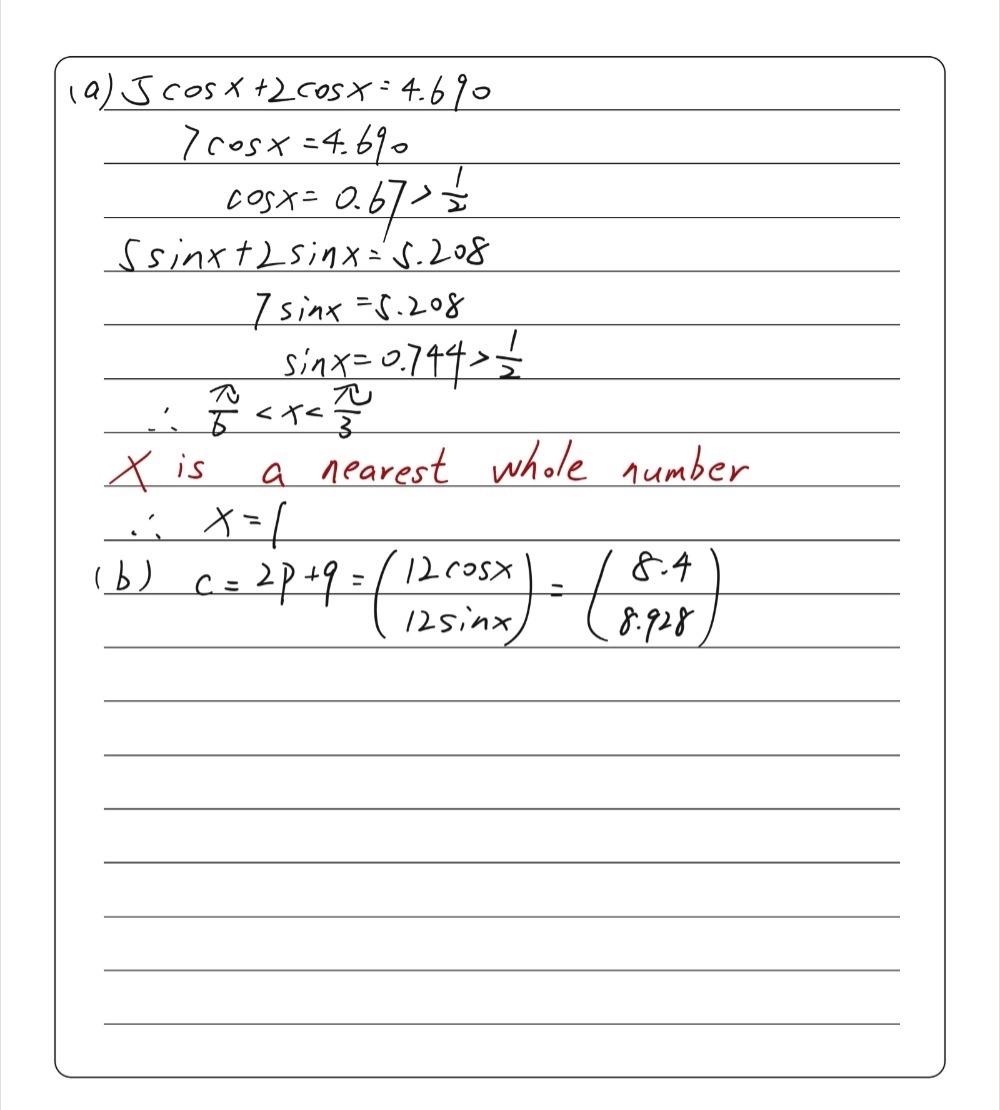 (a) 5 cos x + 2 cos x = 4.690
7 cos x = 4.690
cos x = 0.67 > 1/2
5 sin x + 2 sin x = 5.208
7 sin x = 5.208
sin x = 0.744 > 1/2
∴ π/6 < x < π/3
X is a nearest whole number
∴ x = 1
(b) c = 2p + q = (12 cos x / 12 sin x) = (8.4 / 8.928)